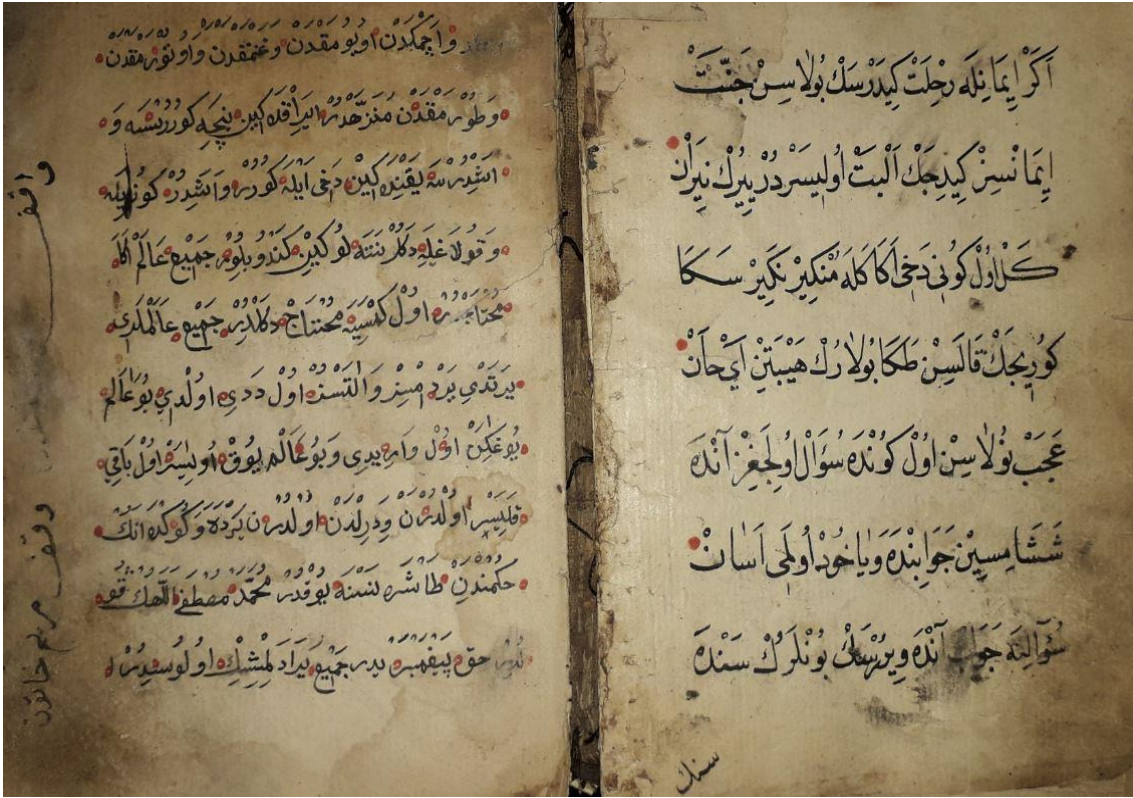 اَكَرْ اِيمَانِلَه رِحْلَتْ كِيدَرْسَكْ بُولَاسِنْ جَنَّتْ
اِيمَانْسِزْ كِيدِجَكْ اَلْبَتْ اُولِيسَرْدُرْ يِيرُكْ نِيرَانْ
كَلَ اوُلْ كوُنِى دَخِى اَكَا كَلَه مُنْكِيرْ نَكِيرْ سَكَا
كوُرِيجَكْ قَالَسِنْ طَكَا بُولَارُكْ هَيْبَتِنْ اَىْ جَانْ
عَجَبْ بُولَاسِنْ اوُلْ كوُنْدَه سُؤَالْ اوُلِجَغِزْ آنْدَه
شَشَامِسِيِنْ جَوَابِنْدَه وَيَاخوُدْ اوُلَمِى اَسَانْ
سُؤَالِنَه جَوَابْ آنْدَه وِيرُرْسَكْ بُونْلَرُكْ سَنْدَه
سنك
واچمكدن اويومقدن وغنمقدن واوتورمقدن
وطورمقدن منزهدر ايراقده كين نيجه كوررايشسه و
اشدرسه يقنده كين دخى ايله كورر واشدر كوزيله
وقولاغله دكل نسنه لوكين كندو بلور جميع عالم اكا
محتاجدر اول كمسيه محتاج دكلدر جميع عالملرى
يرتدى يردمسز والتسز اول ددى اولدى بو عالم
يوغكن اول وار يدى وبو عالم يوق اوليسر اول باقى
قليسر اولدرن ودرلدن اولدرن يرده وكوكده انك
حكمندن طاشره نسنه يوقدر محمد مصطفى اللهك قو
لدر حق پيغمبريدر جميع يرادلمشك اولوسيدر
واقف
وقف مريم خاتون